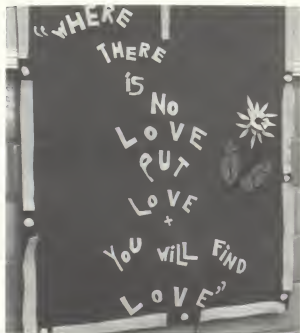 "WHERE
THERE
iS
No
LoVE
PUT
LoVE
+
YoU WiLL FiND
LoVE"